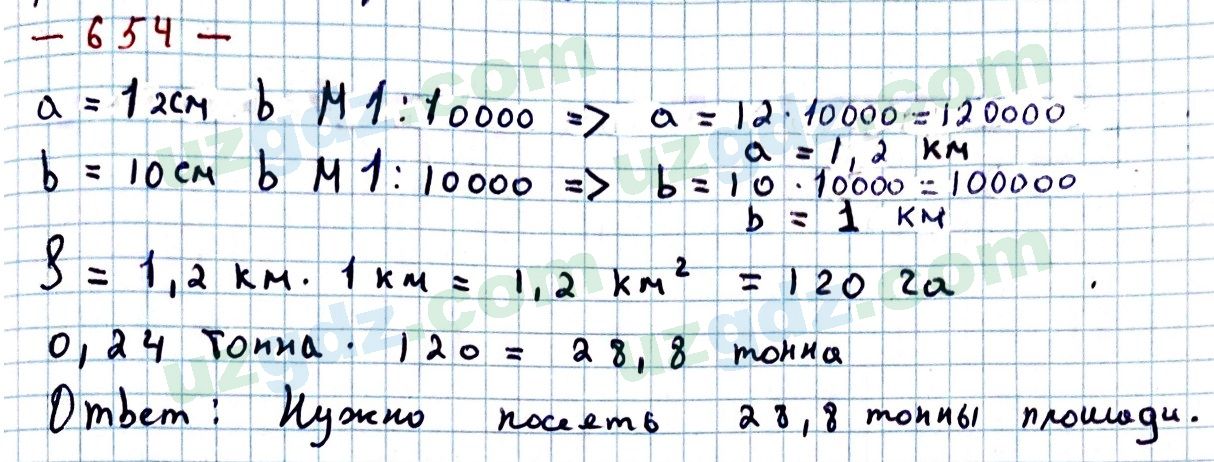 - 654 -
a = 12см b М 1:10000 => a = 12·10000=120000
a = 1,2 км
b = 10см b М 1:10000 => b = 10·10000=100000
b = 1 км
S = 1,2 км. 1 км = 1,2 км² = 120 га.
0,24 тонна · 120 = 28,8 тонна
Ответ: Нужно посеять 28,8 тонны площади.
uzgdz.com
uzgdz.com
uzgdz.com
uzgdz.com